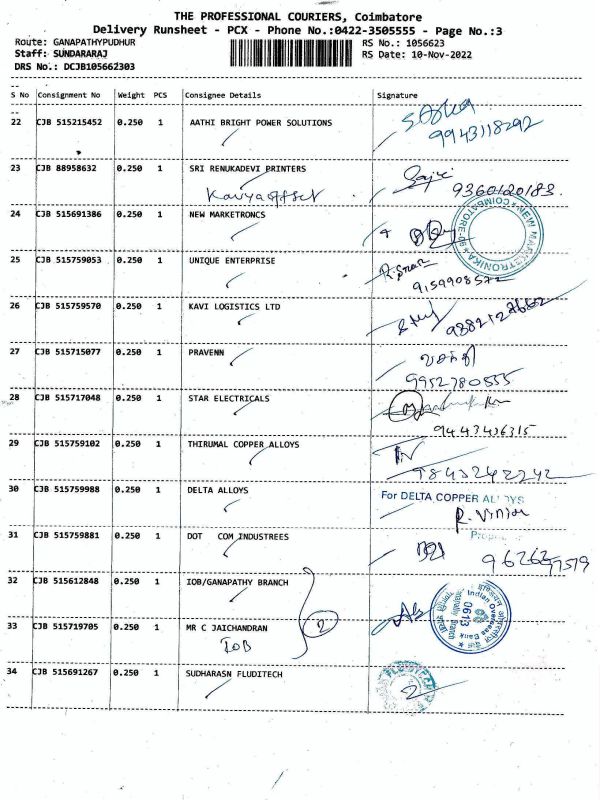 THE PROFESSIONAL COURIERS, Coimbatore
Delivery Runsheet - PCX - Phone No.:0422-3505555 - Page No.:3
Route: GANAPATHYPUDHUR RS No.: 1056623
Staff: SUNDARARAJ RS Date: 10-Nov-2022
DRS No.: DCJB105662303
S No Consignment No Weight PCS Consignee Details Signature
22 CJB 515215452 0.250 1 AATHI BRIGHT POWER SOLUTIONS
9943118292
23 CJB 88958632 0.250 1 SRI RENUKADEVI PRINTERS
Kavya offset 9360120183.
24 CJB 515691386 0.250 1 NEW MARKETRONCS
NEW MARKETRONIKA COIMBATORE
25 CJB 515759053 0.250 1 UNIQUE ENTERPRISE
9159908572
26 CJB 515759570 0.250 1 KAVI LOGISTICS LTD
27 CJB 515715077 0.250 1 PRAVENN
9952780555
28 CJB 515717048 0.250 1 STAR ELECTRICALS
9443436315
29 CJB 515759102 0.250 1 THIRUMAL COPPER ALLOYS
9843242242
30 CJB 515759988 0.250 1 DELTA ALLOYS For DELTA COPPER ALLOYS
31 CJB 515759881 0.250 1 DOT COM INDUSTREES
32 CJB 515612848 0.250 1 IOB/GANAPATHY BRANCH
Indian Overseas Bank
0613
33 CJB 515719705 0.250 1 MR C JAICHANDRAN
IOB 2
34 CJB 515691267 0.250 1 SUDHARASN FLUDITECH